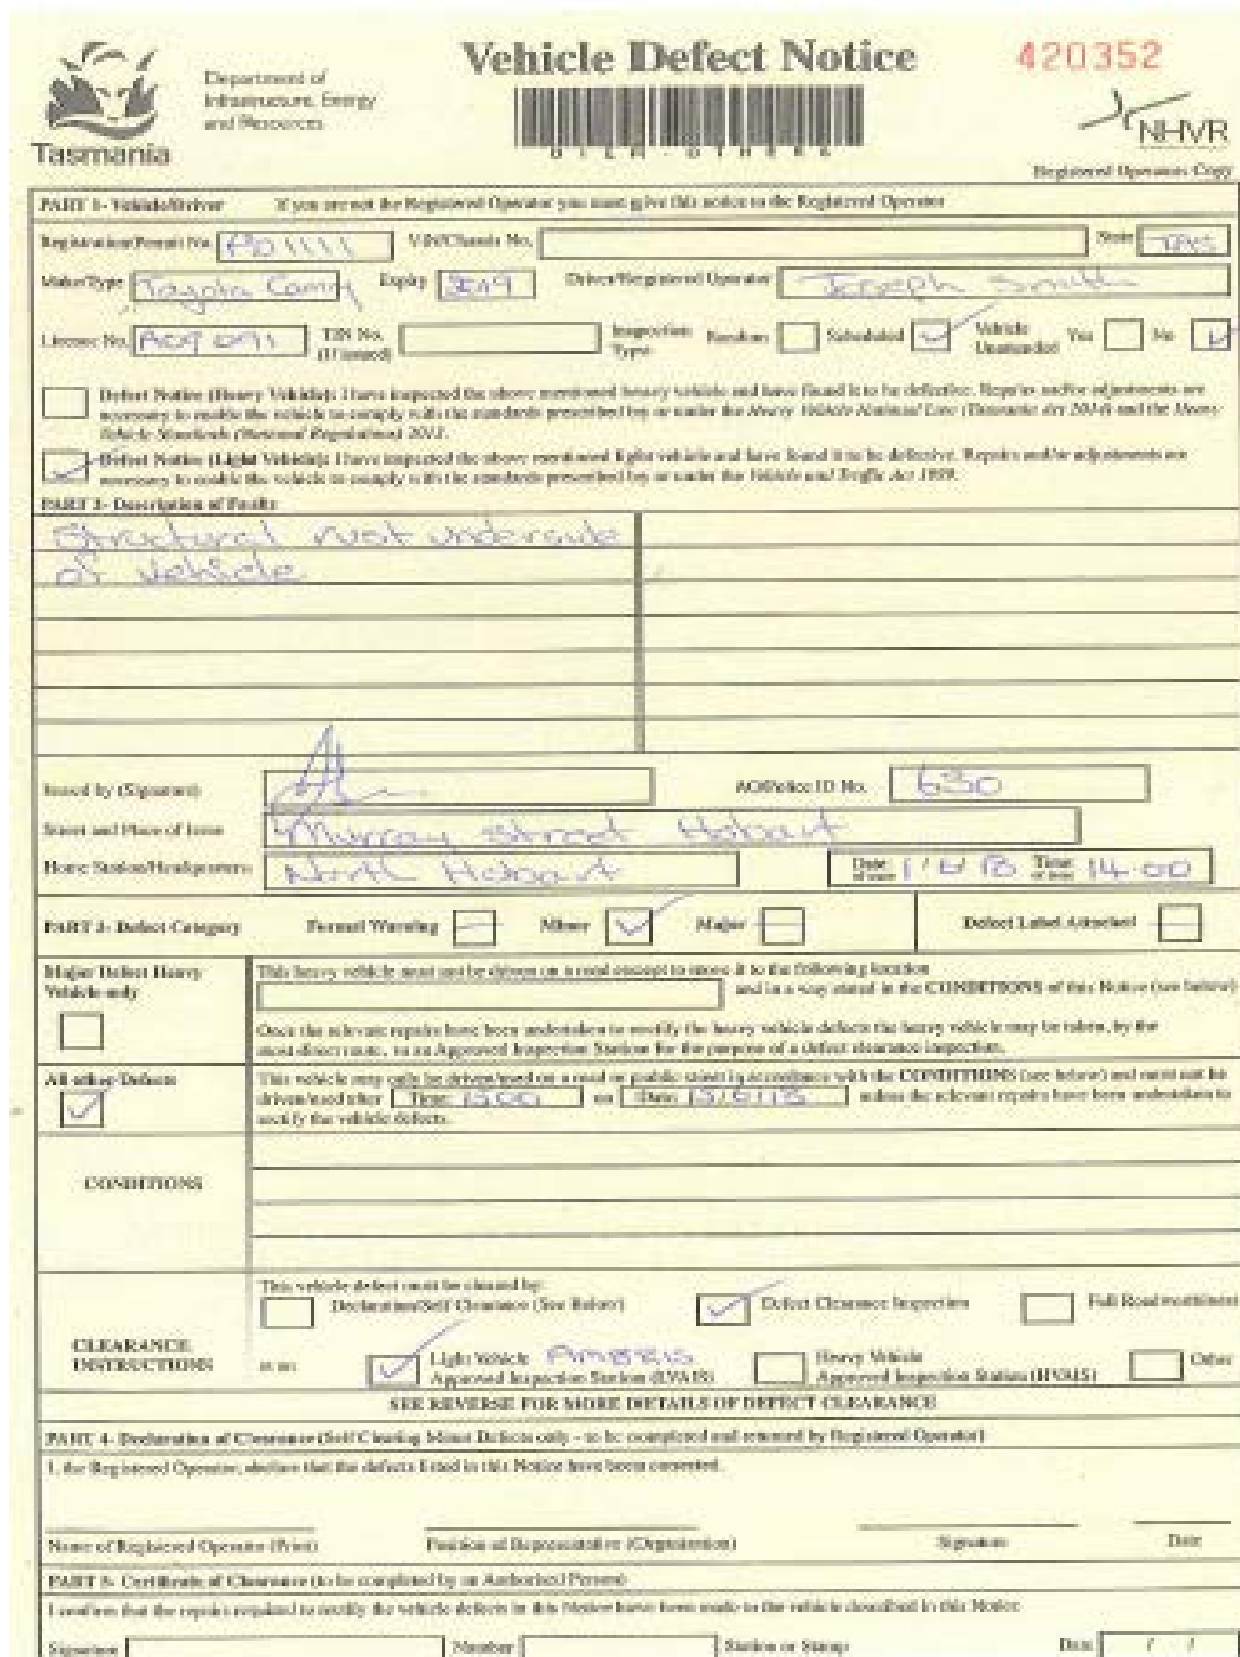 Vehicle Defect Notice
420352
Department of
Infrastructure, Energy
and Resources
Tasmania
NHVR
Registered Operators Copy
PART 1- Vehicle/Driver If you are not the Registered Operator you must give this notice to the Registered Operator
Registration/Permit No. VIN/Chassis No. State TAS
Make/Type Toyota Camry Expiry Driver/Registered Operator Joseph Smith
License No. A09 091 TIN No. (If issued) Inspection Type Random Scheduled Vehicle Unattended Yes No
Defect Notice (Heavy Vehicle): I have inspected the above mentioned heavy vehicle and have found it to be defective. Repairs and/or adjustments are
necessary to enable the vehicle to comply with the standards prescribed by or under the Heavy Vehicle National Law (Tasmania) Act 2014) and the Heavy
Vehicle Standards (National Regulation) 2013.
Defect Notice (Light Vehicle): I have inspected the above mentioned light vehicle and have found it to be defective. Repairs and/or adjustments are
necessary to enable the vehicle to comply with the standards prescribed by or under the Vehicle and Traffic Act 1999.
PART 2- Description of Faults
Structural rust underside
of vehicle
Issued by (Signature) AO/Police ID No. 630
Street and Place of Issue Murray Street Hobart
Home Station/Headquarters North Hobart Date of issue Time of issue 14.00
PART 3- Defect Category Formal Warning Minor Major Defect Label Attached
Major Defect Heavy
Vehicle only
This heavy vehicle must not be driven on a road except to move it to the following location
and in a way stated in the CONDITIONS of this Notice (see below)
Once the relevant repairs have been undertaken to rectify the heavy vehicle defects the heavy vehicle may be taken, by the
most direct route, to an Approved Inspection Station for the purpose of a defect clearance inspection.
All other Defects
This vehicle may only be driven/used on a road or public street in accordance with the CONDITIONS (see below) and must not be
driven/used after Time: 1500 on Date: unless the relevant repairs have been undertaken to
rectify the vehicle defects.
CONDITIONS
CLEARANCE
INSTRUCTIONS
This vehicle defect must be cleared by:
Declaration/Self Clearance (See Below) Defect Clearance Inspection Full Roadworthiness
at an: Light Vehicle Approved Inspection Station (LVAIS) Heavy Vehicle Approved Inspection Station (HVAIS) Other
SEE REVERSE FOR MORE DETAILS OF DEFECT CLEARANCE
PART 4- Declaration of Clearance (Self Clearing Minor Defects only - to be completed and returned by Registered Operator)
I, the Registered Operator, declare that the defects listed in this Notice have been corrected.
Name of Registered Operator (Print) Position of Representative (Organisation) Signature Date
PART 5- Certificate of Clearance (to be completed by an Authorised Person)
I confirm that the repairs required to rectify the vehicle defects in this Notice have been made to the vehicle described in this Notice
Signature Number Station or Stamp Date / /